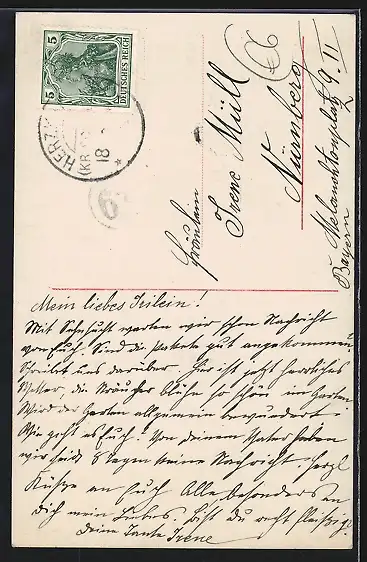 5
5
DEUTSCHES REICH
HERZ
(KR
18
6
6
Fräulein
Irene Müll
Nürnberg
Melanchtonplatz 9. II
Bayern
Mein liebes Irilein!
Mit Sehnsucht warten wir schon Nachricht
von Euch. Sind die Pakete gut angekommen
Schreibt uns darüber. Hier ist jetzt herrliches
Wetter, die Sträucher blühen so schön im Garten
Wird der Garten allgemein bewundert.
Wie geht es Euch? Von deinem Vater haben
wir seit 8 Tagen keine Nachricht. Herzl
Küsse an Euch Alle, besonders an
dich mein Liebes. Bist du recht fleißig?
Deine Tante Irene